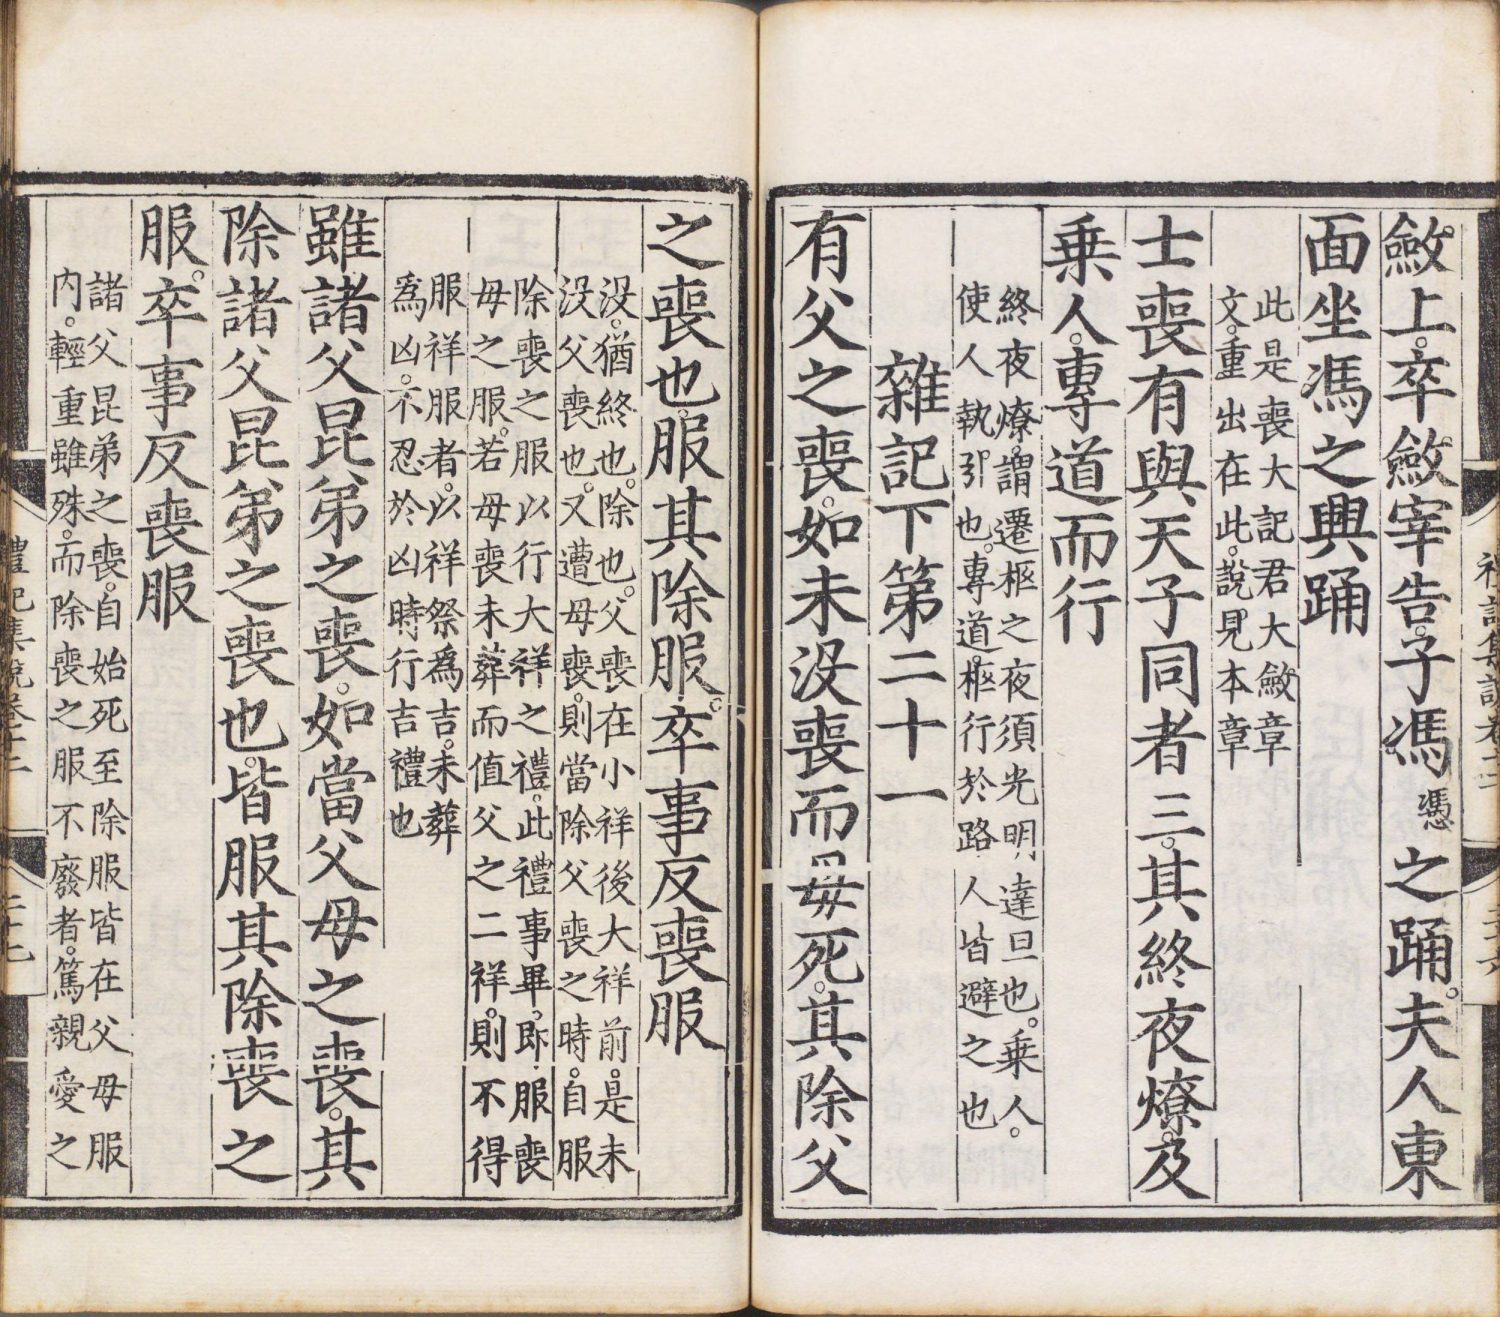 斂上。卒斂宰告。子馮憑之踊。夫人東
面坐馮之興踊
此是喪大記君大斂章
文。重出在此。說見本章
士喪有與天子同者三。其終夜燎。及
乗人。專道而行
終夜燎。謂遷柩之夜須光明達旦也。乗人。
使人執引也。專道。柩行於路。人皆避之也
雜記下第二十一
有父之喪。如未沒喪而母死。其除父
之喪也。服其除服。卒事反喪服
没。猶終也。除也。父喪在小祥後大祥前。是未
没父喪也。又遭母喪。則當除父喪之時。自服
除喪之服以行大祥之禮。此禮事畢。即服喪
母之服。若母喪未葬而值父之二祥。則不得
服祥服者。以祥祭爲吉。未葬
爲凶。不忍於凶時行吉禮也
雖諸父昆弟之喪。如當父母之喪。其
除諸父昆弟之喪也。皆服其除喪之
服。卒事反喪服
諸父昆弟之喪。自始死至除服皆在父母服
内。輕重雖殊。而除喪之服不廢者。篤親愛之
禮記集說卷